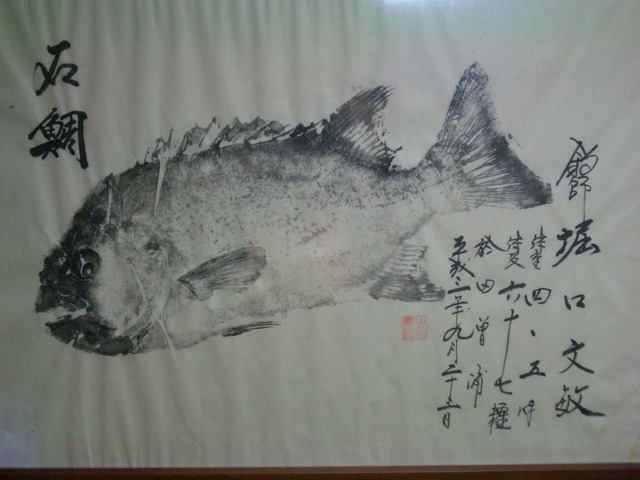 石鯛
堀口文敏
体重四、五
体長六十七糎
於田曽浦
平成二年九月二十三日